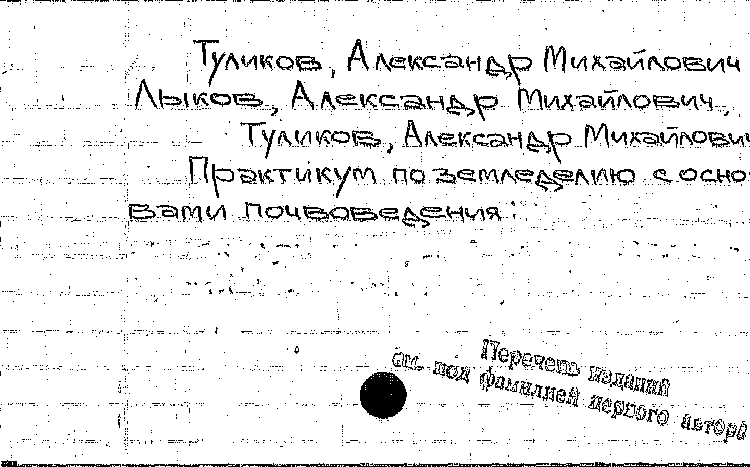 Туликов, Александр Михайлович
Лыков, Александр Михайлович,
Туликов, Александр Михайлович
Практикум по земледелию с осно-
вами почвоведения:
Перечень изданий
см. под фамилией первого автора